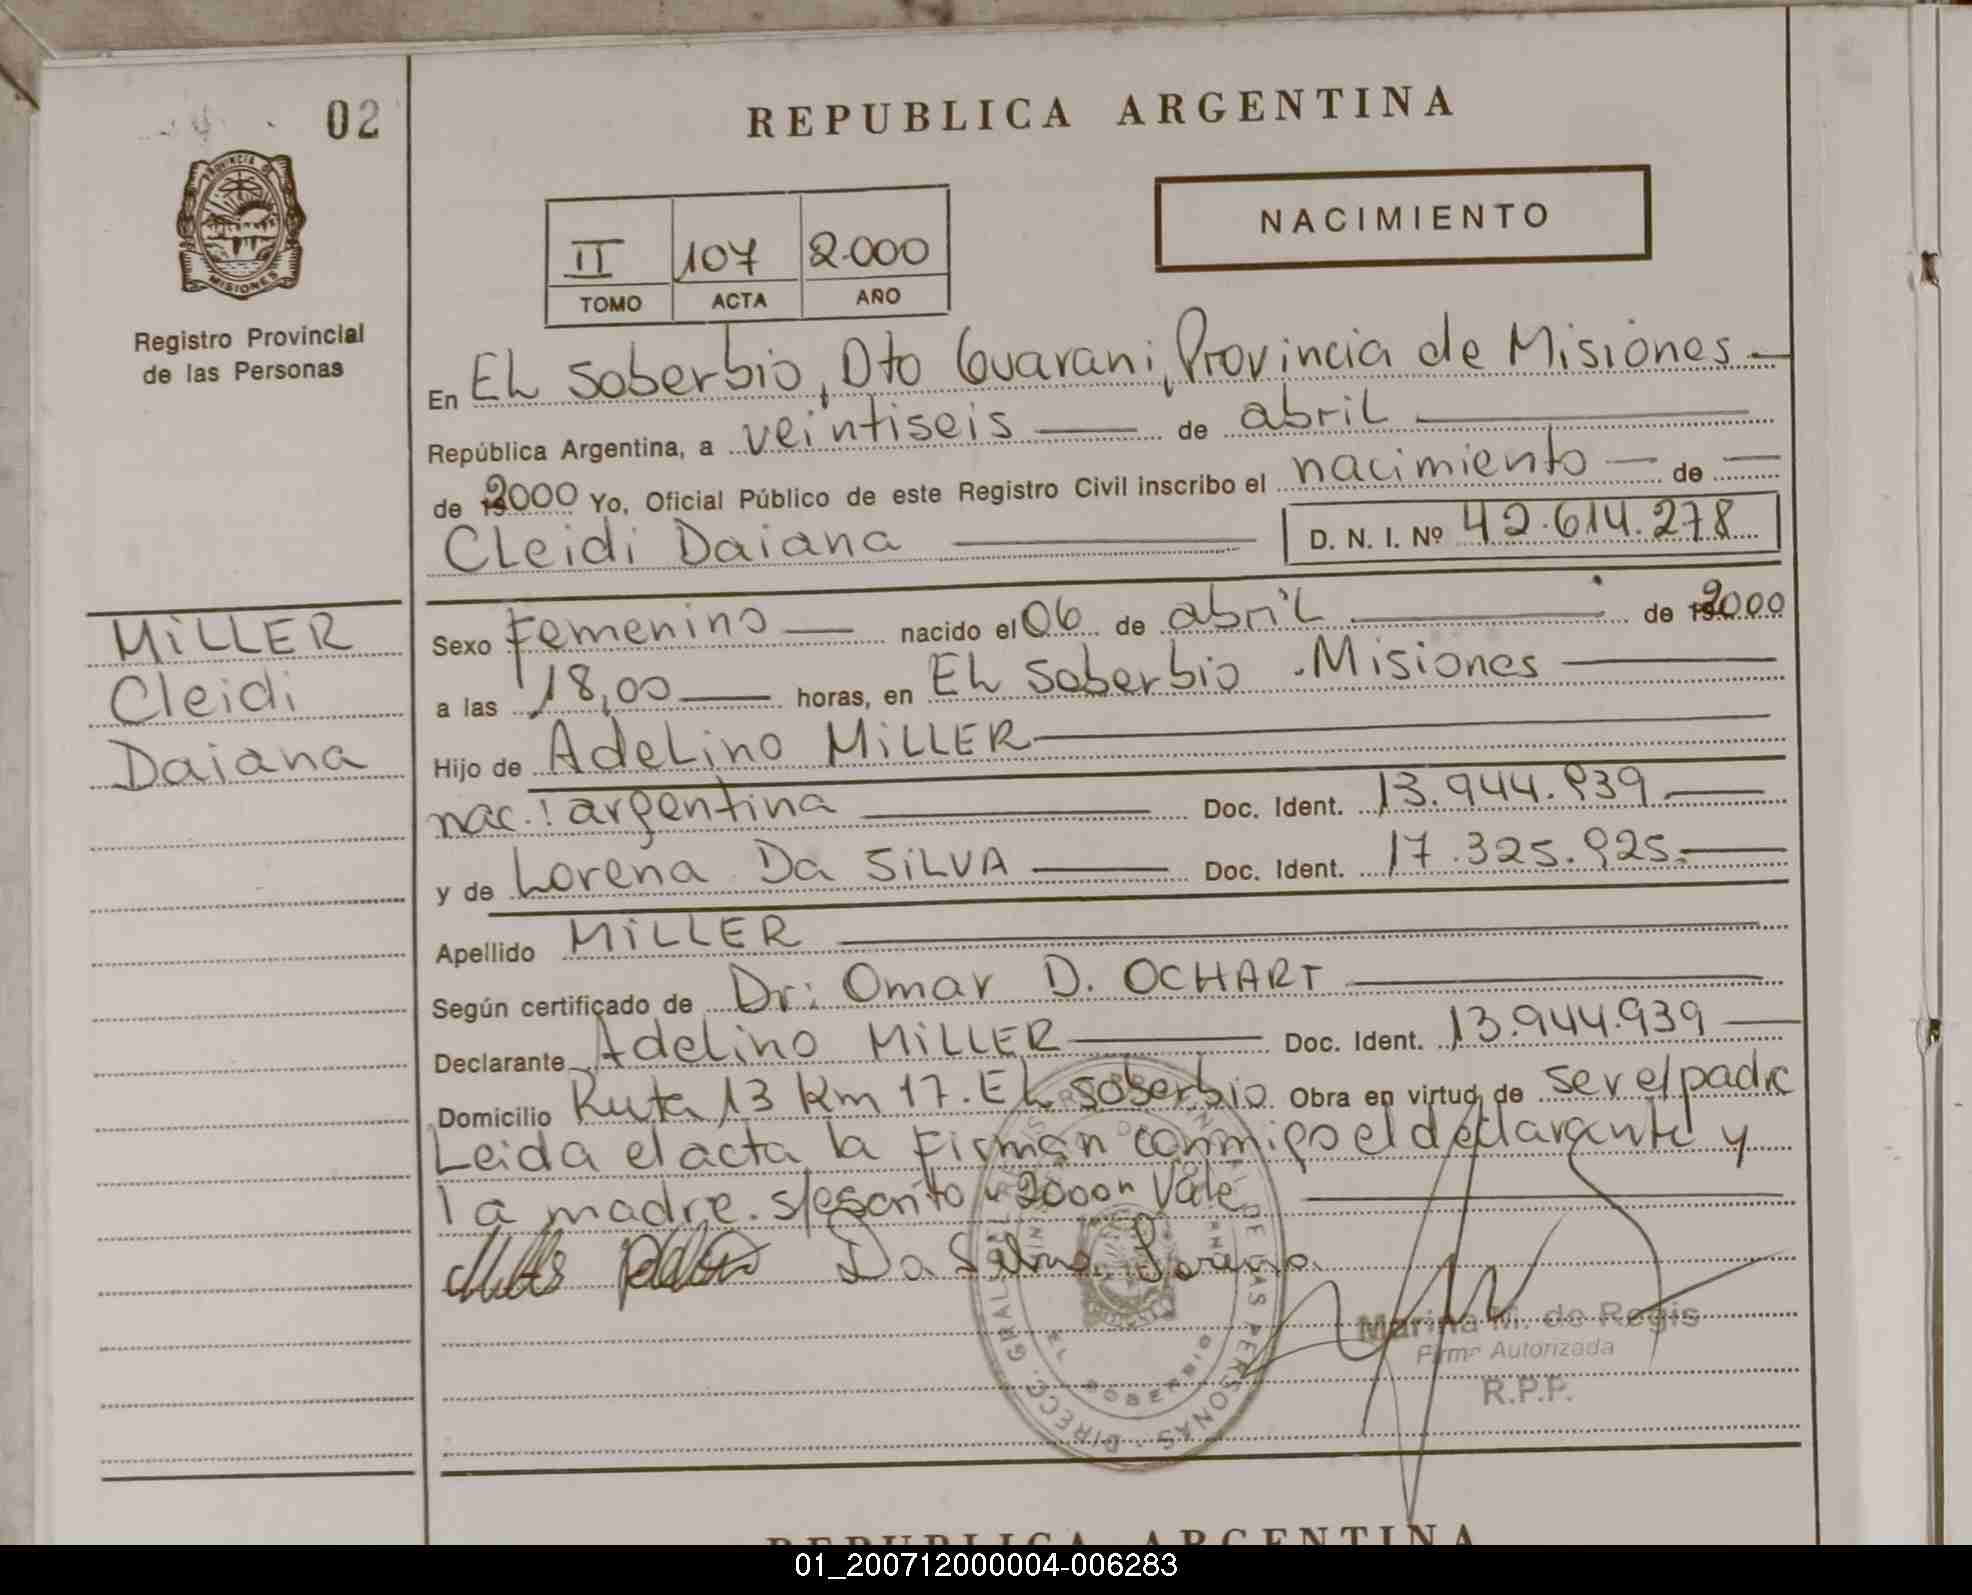 02
REPUBLICA ARGENTINA
PROVINCIA DE
MISIONES
Registro Provincial
de las Personas
NACIMIENTO
II 107 2.000
TOMO ACTA AÑO
En EL Soberbio, Dto Guarani, Provincia de Misiones
República Argentina, a veintiseis de abril
de 2000 Yo, Oficial Público de este Registro Civil inscribo el nacimiento de
Cleidi Daiana D. N. I. Nº 42.614.278
MiLLER
Cleidi
Daiana
Sexo Femenino nacido el 06 de abril de 2000
a las 18,00 horas, en EL Soberbio .Misiones
Hijo de AdeLino MiLLER
nac.: argentina Doc. Ident. 13.944.939
y de Lorena Da SiLVA Doc. Ident. 17.325.925.
Apellido MiLLER
Según certificado de Dr: Omar D. OCHART
Declarante Adelino MiLLER Doc. Ident. 13.944.939
Domicilio Ruta 13 Km 17. EL soberbio Obra en virtud de ser el padre
Leida el acta la firman conmigo el declarante y
la madre. s/escrito "2000" Vale
Da Silva Lorena
DIRECC. GRAL. DE LAS PERSONAS
EL SOBERBIO
Marina M. de Regis
Firma Autorizada
R.P.P.
REPUBLICA ARGENTINA
01_200712000004-006283